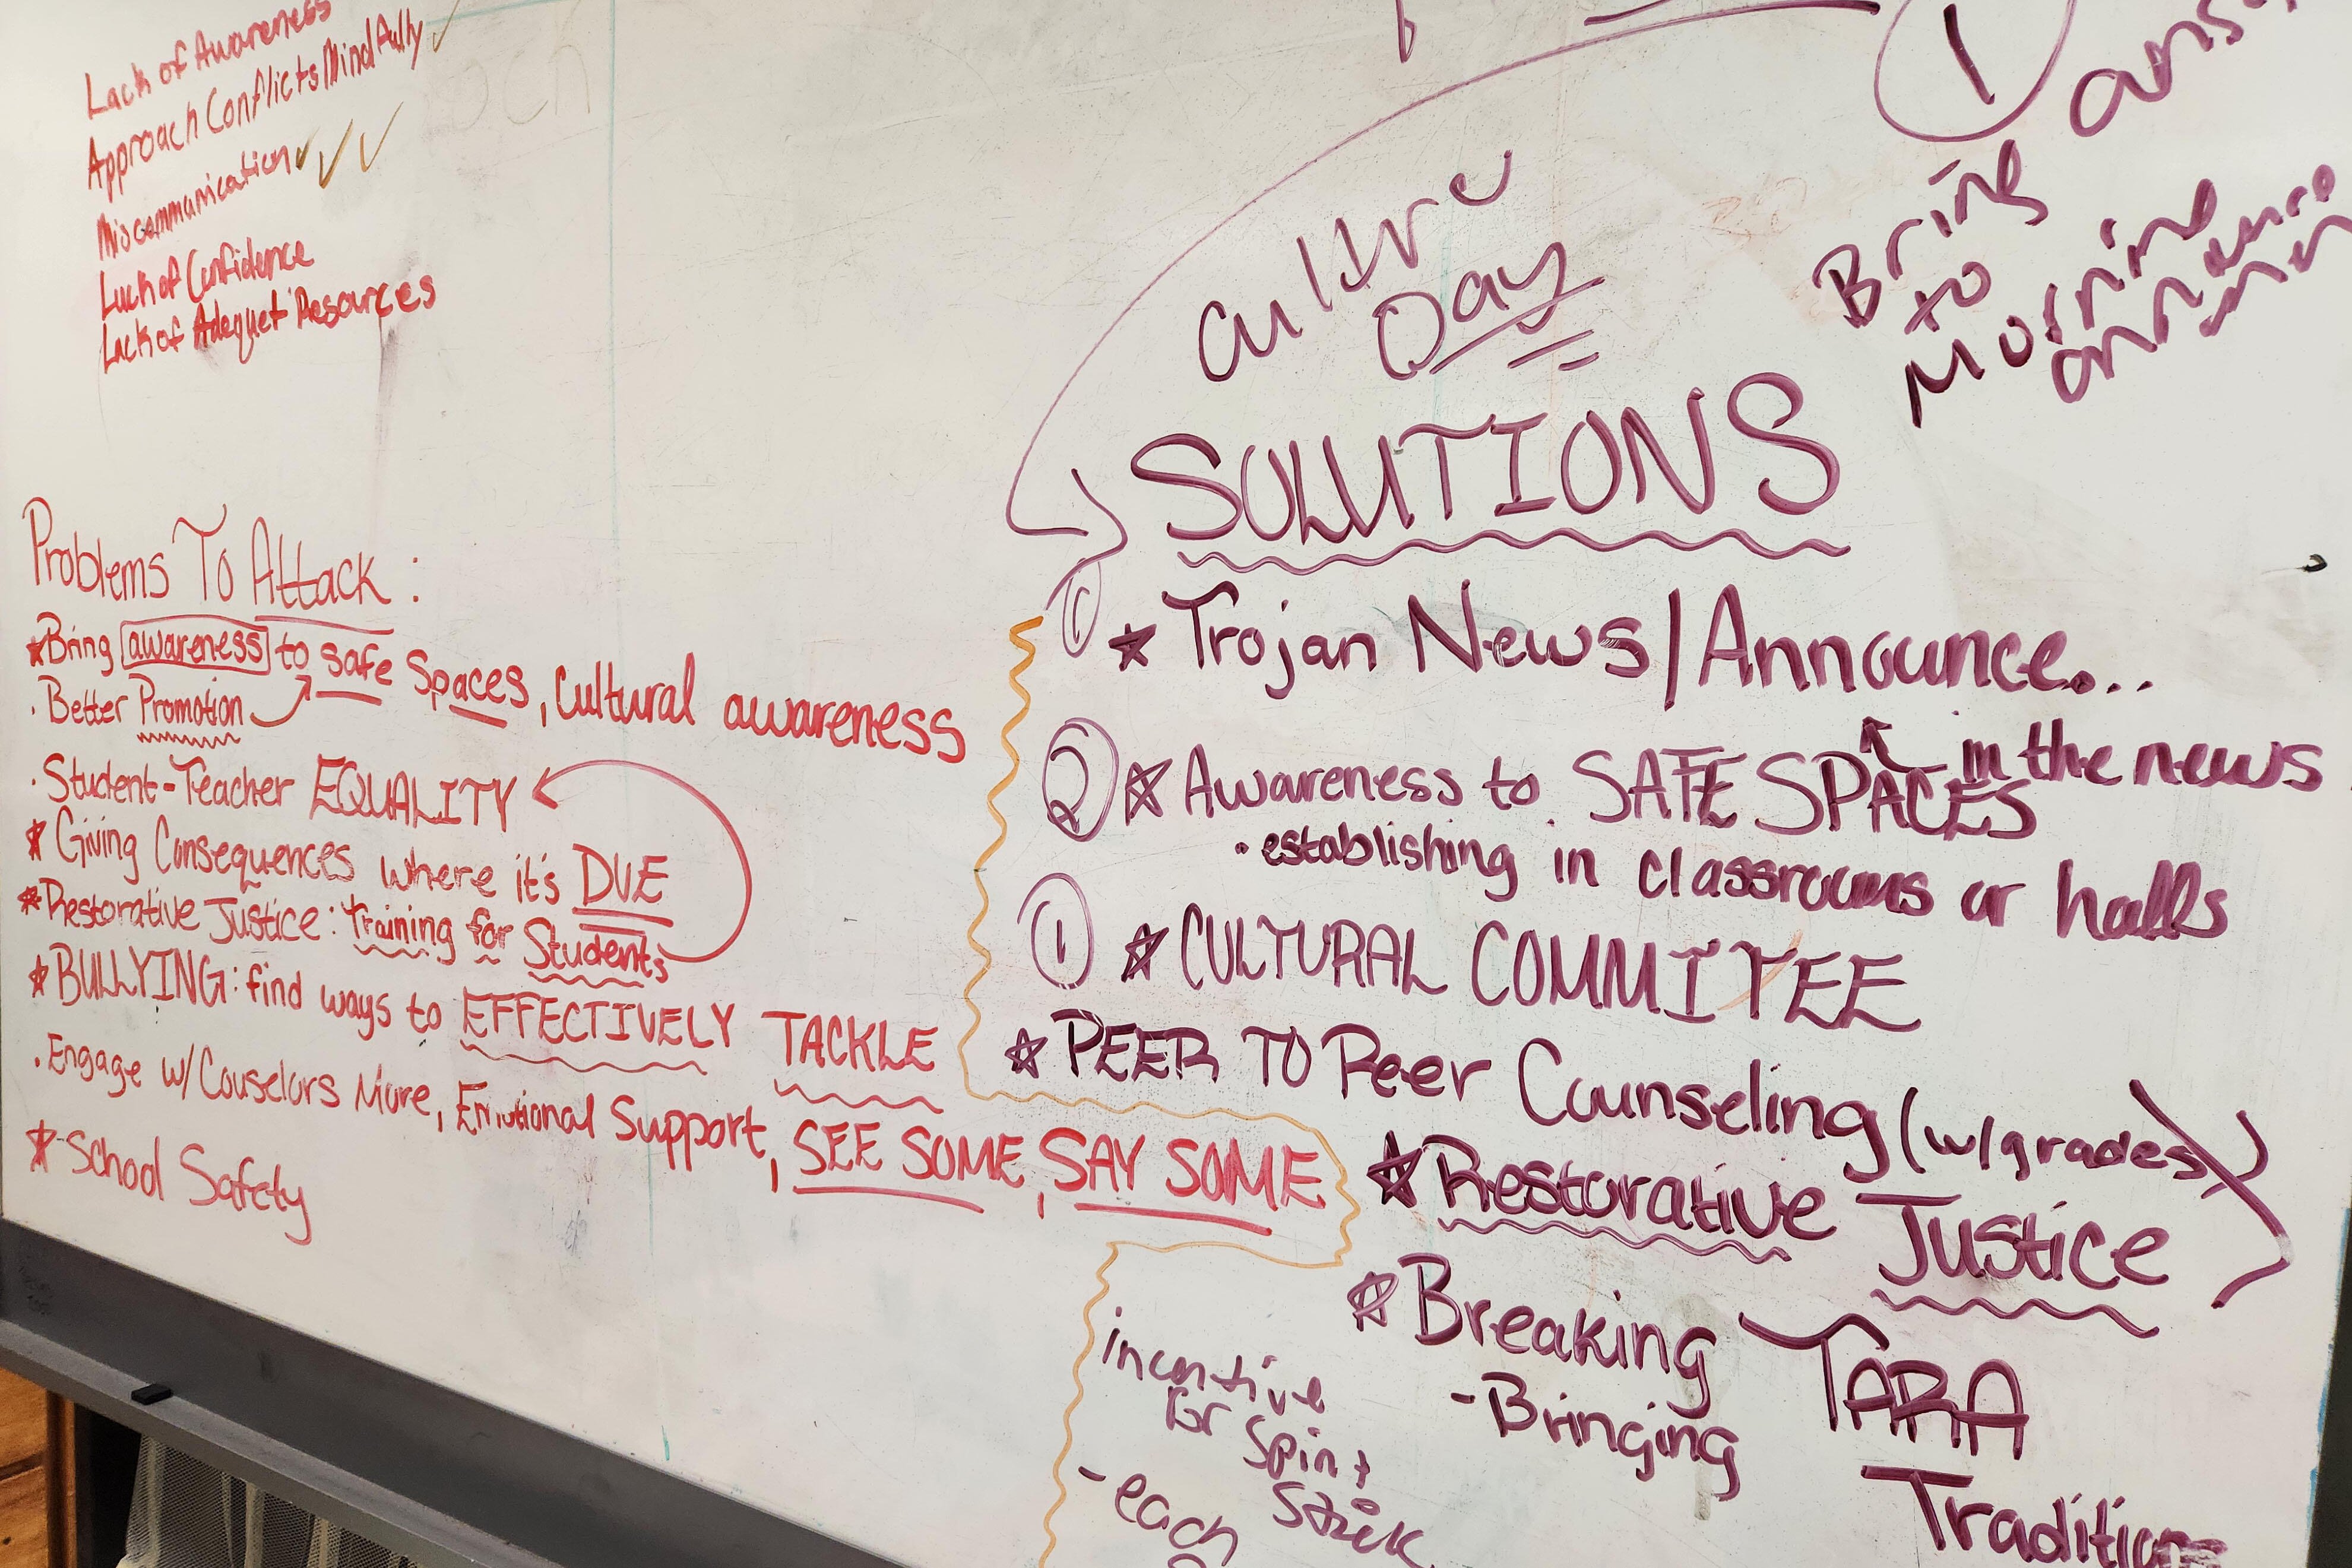 Lack of Awareness
Approach Conflicts Mindfully
Miscommunication
Lack of Confidence
Lack of Adequet Resources
Problems To Attack :
Bring awareness to safe Spaces, Cultural awareness
· Better Promotion
· Student-Teacher EQUALITY
Giving Consequences where it's DUE
Restorative Justice: training for Students
BULLYING: find ways to EFFECTIVELY TACKLE
· Engage w/Couselors More, Emotional Support, SEE SOME, SAY SOME
School Safety
1
Bring
to
Morning
Cultre
Day
SOLUTIONS
1 Trojan News/Announce...
in the news
2 Awareness to SAFE SPACES
· establishing in classrooms or halls
1 CULTURAL COMMITEE
PEER TO Peer Counseling (w/grades)
Restorative Justice
Breaking TARA
- Bringing Traditions
incentive
for Spirit
Stick
- each